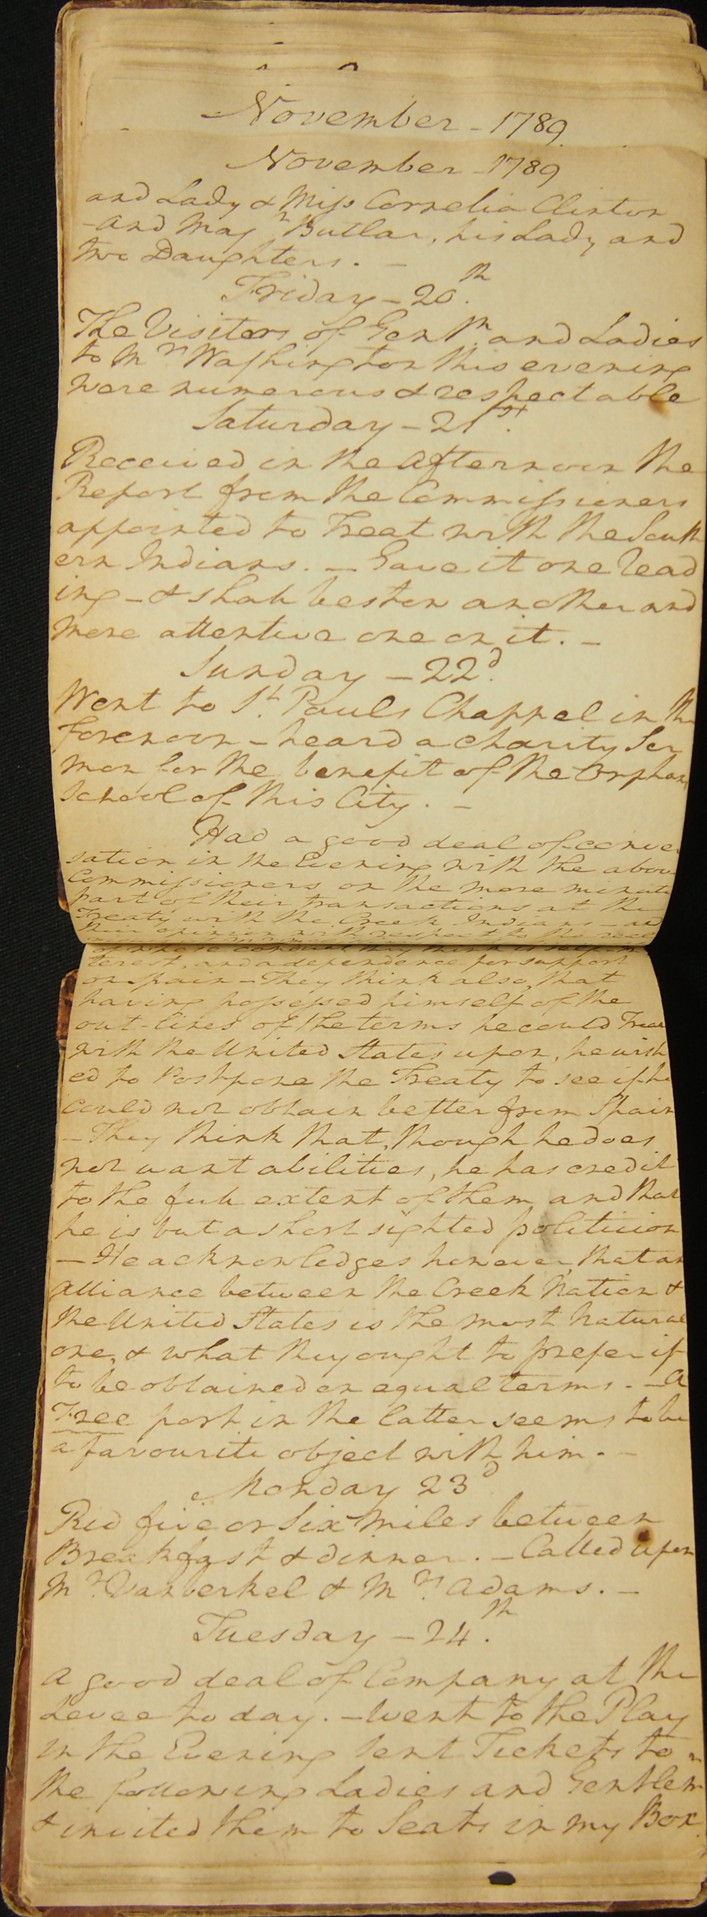 November - 1789
November - 1789
and Lady & Miss Cornelia Clinton
- and Majr. Butlar, his Lady and
two Daughters. -
Friday - 20th.
The Visitors of Gentn. and Ladies
to Mrs. Washington this evening
were numerous & respectable
Saturday - 21st.
Received in the afternoon the
Report from the Commissioners
appointed to Treat with the South
ern Indians. - Gave it one read
ing - & shall bestow another and
more attentive one on it. -
Sunday - 22d.
Went to St. Pauls Chappel in the
forenoon - heard a charity Ser
mon for the benefit of the Orphan
School of this City. -
Had a good deal of conver
sation in the Evening with the above
Commissioners on the more minute
part of their transactions at the
Treaty with the Creek Indians - and
their opinion with respect to the real
terest, and a dependence for support
on Spain - They think also, that
having possessed himself of the
out-lines of the terms he could Treat
with the United States upon, he wish
ed to Postpone the Treaty to see if he
could not obtain better from Spain
- They think that, though he does
not want abilities, he has credit
to the full extent of them and that
he is but a short sighted politicion
- He acknowledges however, that an
alliance between the Creek Nation &
the United States is the most natural
one, & what they ought to prefer if
to be obtained on equal terms. - A
Free port in the latter seems to be
a favourite object with him. -
Monday 23d
Rid five or six miles between
Breakfast & dinner. - Called upon
Mr. Vanberkel & Mrs. Adams. -
Tuesday - 24th.
A good deal of Company at the
Levee to day. - Went to the Play
in the Evening sent Tickets to
the following Ladies and Gentlemn
& invited them to Seats in my Box